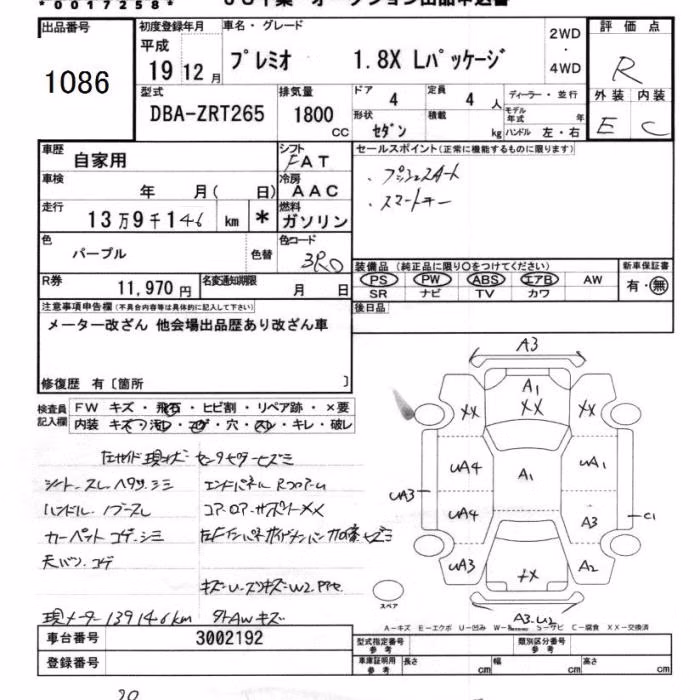 *0017258*
出品番号
1086
初度登録年月
平成
19 12 月
車名・グレード
プレミオ 1.8X Lパッケージ
2WD
・
4WD
評価点
R
外装 内装
E C
型式
DBA-ZRT265
排気量
1800 CC
ドア 4
定員 4 人
ディーラー・並行
形状 セダン
積載 kg
モデル年式 年
ハンドル 左・右
車歴 自家用
シフト FAT
車検 年 月( 日)
冷房 AAC
走行 13万9千146 km *
燃料 ガソリン
色 パープル
色替
色コード 3R0
R券 11,970 円
名変通知期限 月 日
セールスポイント(正常に機能するものに限ります)
・プッシュスタート
・スマートキー
装備品 (純正品に限り○をつけてください)
PS PW ABS エアB AW
SR ナビ TV カワ
新車保証書
有・無
後日品
注意事項申告欄(不具合内容等は具体的に記入して下さい)
メーター改ざん 他会場出品歴あり改ざん車
修復歴 有〔箇所 〕
検査員記入欄
FW キズ・飛石・ヒビ割・リペア跡・×要
内装 キズ・汚レ・コゲ・穴・スレ・キレ・破レ
シート スレ ヘタリ シミ
ハンドル・ノブスレ
カーペット コゲ・シミ
天バリ コゲ
現メーター139146km 外AWキズ
A3
A1
XX XX XX
UA4 A1 UA1
UA3 UA4 A3 C1
UA3 A2
XX
A3.U2
スペア
A-キズ E-エクボ U-凹み C-腐食 XX-交換済
車台番号 3002192
登録番号
型式指定番号 参考
類別区分番号 参考
車庫証明用 参考
長さ cm 幅 cm 高さ cm
20